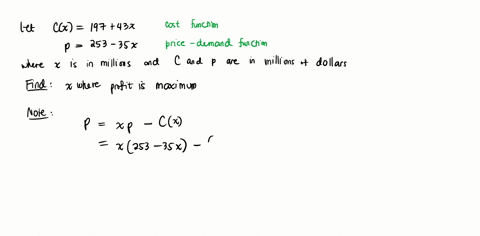 Let C(x) = 197 + 43x cost function
p = 253 - 35x price-demand function
where x is in millions and C and p are in millions of dollars
Find: x where profit is maximum
Note:
P = xp - C(x)
= x(253 - 35x) - (